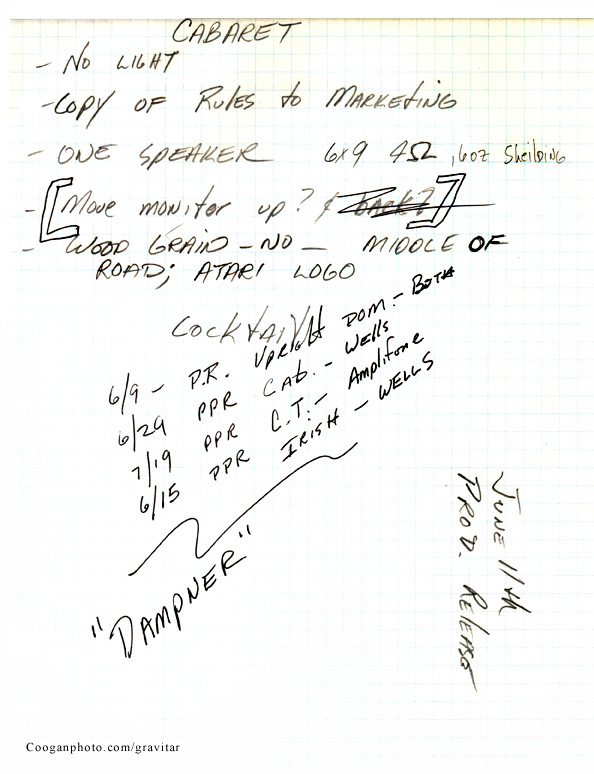 CABARET
- NO LIGHT
- COPY OF RULES to MARKETING
- ONE SPEAKER 6x9 4Ω, 6oz Sheilding
- [Move monitor up? & back?]
- WOOD GRAIN - NO - MIDDLE OF
ROAD; ATARI LOGO
COCKTAIL
6/9 - P.R. Upright DOM. - BOTH
6/29 PPR CAb. - Wells
7/19 PPR C.T. - Amplifone
6/15 PPR IRISH - WELLS
"DAMPNER"
JUNE 11th
PROD. RELEASE
Cooganphoto.com/gravitar